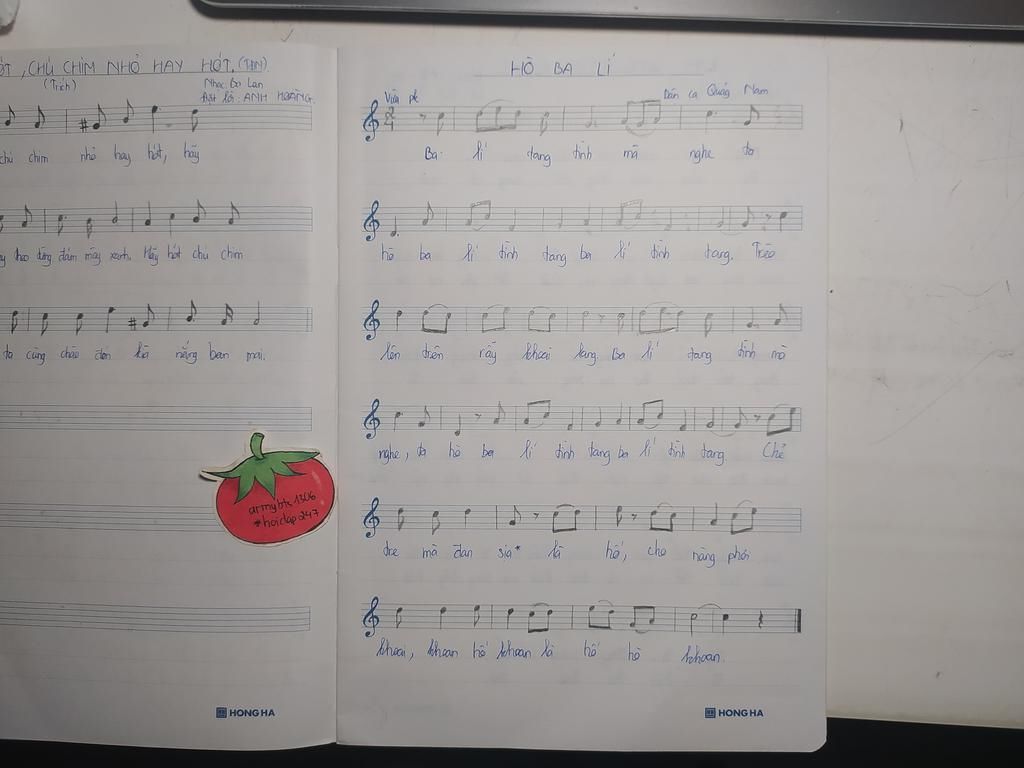 ỚT, CHÚ CHIM NHỎ HAY HÓT. (TĐN)
(Trích)
Nhạc. Ba Lan
Đặt lời: ANH HOÀNG.
chú chim nhỏ hay hót, hãy
theo từng đám mây xanh. Hãy hót chú chim
ta cùng chào đón tia nắng ban mai.
armybts1306
#hoidap247
HONG HA
HÒ BA LÍ
Vừa phải
Dân ca Quảng Nam
2
4
Ba lí tang tình mà nghe ta
hò ba lí tình tang ba lí tình tang. Trèo
lên trên rẫy khoai lang Ba lí tang tình mà
nghe, ta hò ba lí tình tang ba lí tình tang Chẻ
tre mà đan sịa* là hố, cho nàng phơi
khoai, khoan hố khoan là hố hò khoan.
HONG HA